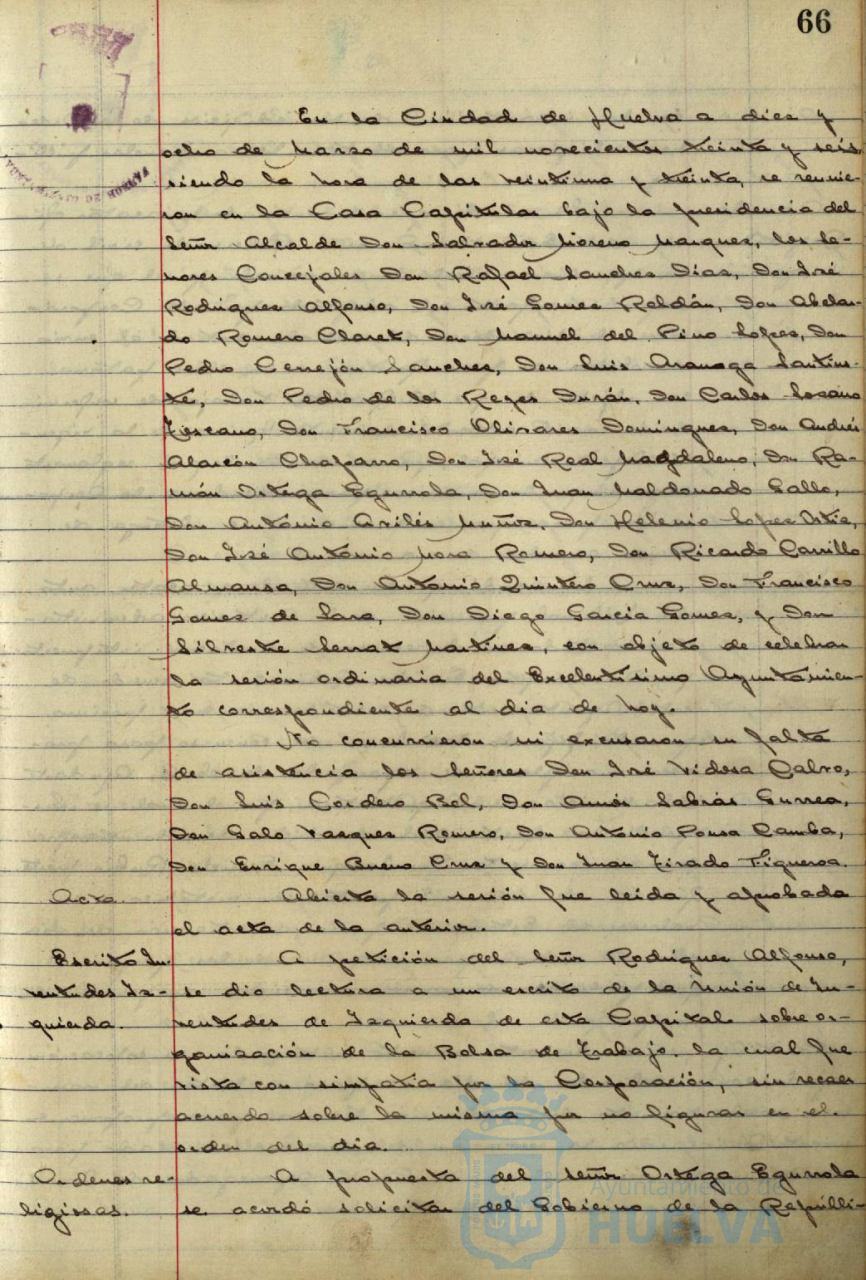 66
En la Ciudad de Huelva a diez y
ocho de Marzo de mil novecientos treinta y seis,
siendo la hora de las veintiuna y treinta, se reunie-
ron en la Casa Capitular bajo la presidencia del
Señor Alcalde Don Salvador Moreno Marquez, los Se-
ñores Concejales Don Rafael Sanchez Diaz, Don José
Rodriguez Alfonso, Don José Gomez Roldán, Don Abelar-
do Romero Claret, Don Manuel del Pino Lopez, Don
Pedro Cerrejón Sanchez, Don Luis Aranaga Santin-
té, Don Pedro de los Reyes Durán, Don Carlos Lozano
Toscano, Don Francisco Olivares Dominguez, Don Andrés
Alarcón Chaparro, Don José Real Magdaleno, Don Ra-
món Ortega Egurrola, Don Juan Maldonado Gallo,
Don António Avilés Muñoz, Don Helenio Lopez
Don José António Mora Romero, Don Ricardo Carrillo
Almansa, Don Antonio Quintero Cruz, Don Francisco
Gomez de Lara, Don Diego Garcia Gomez, y Don
Silvestre Serrat Martinez, con objeto de celebrar
la sesión ordinaria del Excelentisimo Ayuntamien-
to correspondiente al dia de hoy.
No concurrieron ni excusaron su falta
de asistencia los Señores Don José Vidosa Calvo,
Don Luis Cordero Bel, Don Amós Sabrás Gurrea,
Don Galo Vazquez Romero, Don Antonio Pousa Camba,
Don Enrique Bueno Cruz y Don Juan Tirado Figueroa.
Acta. Abierta la sesión fue leida y aprobada
el acta de la anterior.
Escrito Ju- A petición del Señor Rodriguez Alfonso,
ventudes Iz- se dio lectura a un escrito de la Unión de Ju-
quierda. ventudes de Izquierda de esta Capital sobre or-
ganización de la Bolsa de Trabajo, la cual fue
vista con simpatia por la Corporación, sin recaer
acuerdo sobre la misma por no figurar en el
orden del dia.
Ordenes re- A propuesta del Señor Ortega Egurrola
ligiosas. se acordó solicitar del Gobierno de la Repúbli-
Ayuntamiento de
HUELVA